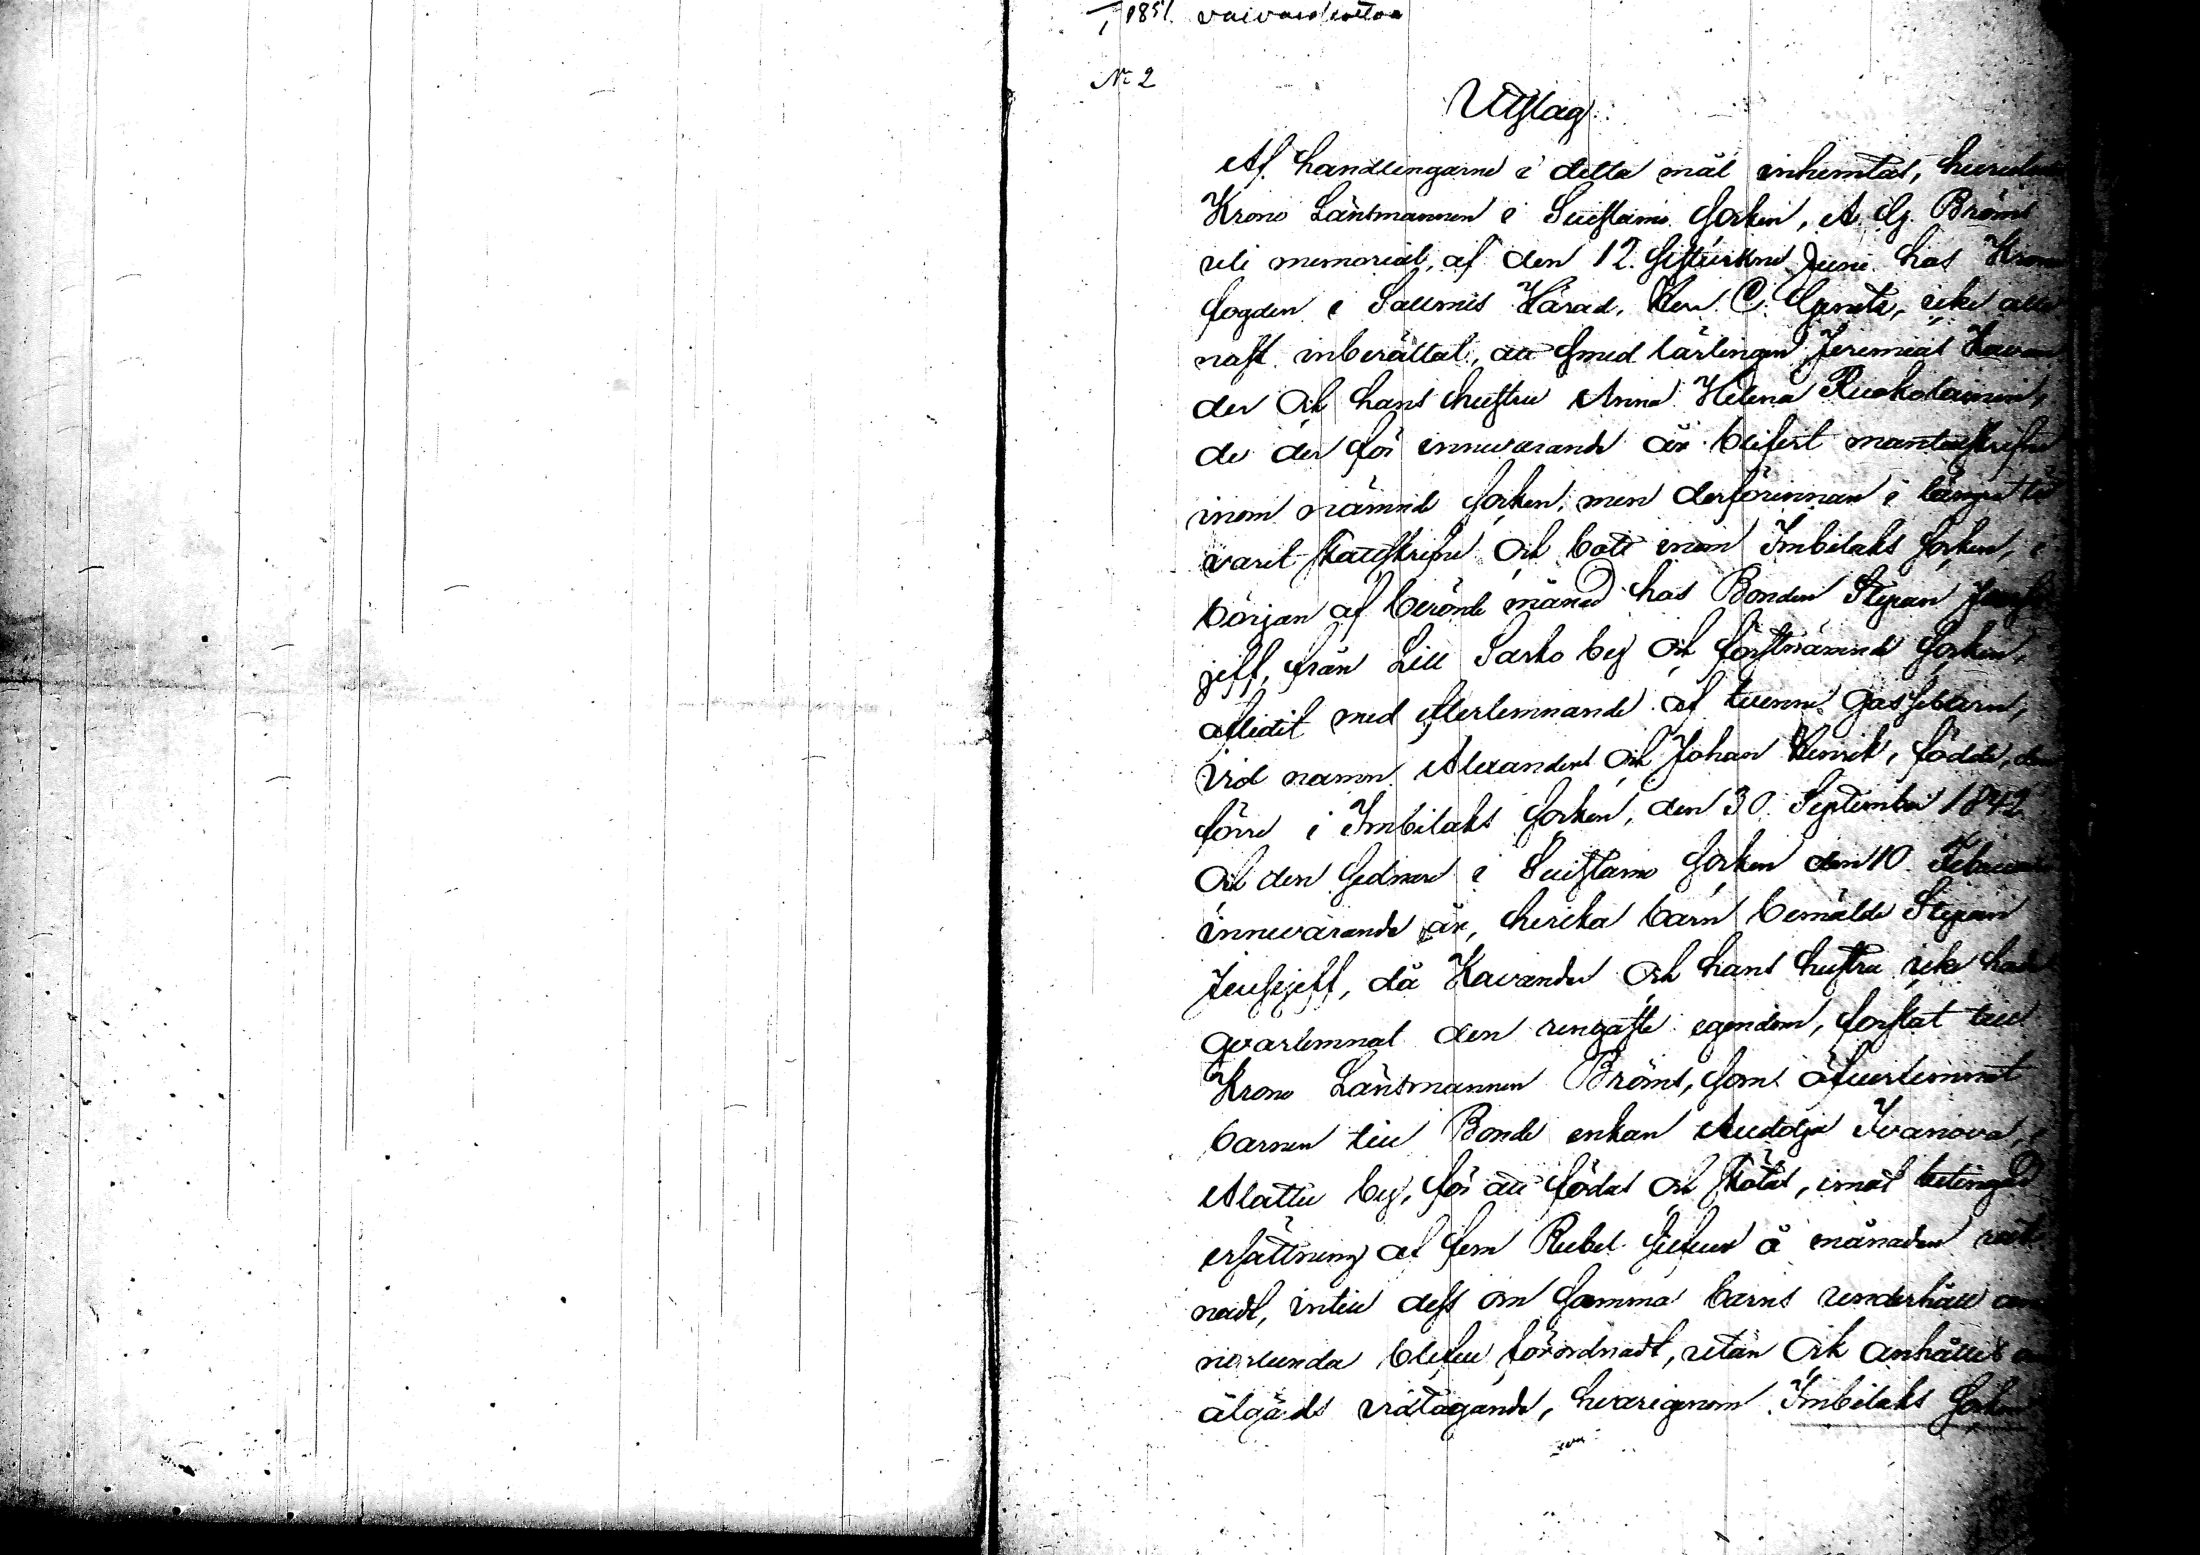 1851. vaivaishoitoa
No 2
Utslag
Af handlingarne i detta mål inhemtas, hurusom
Krono Länsmannen i Suistamo Socken, A. G. Bröms
uti memorial, af den 12. sistlidne Juni hos Krono
fogden i Salmis Härad, Herr C. ike alle
nast inberättat, att Smed lärlingen Jeremias Kavan
der och hans hustru Anna Helena Ruokolainen,
de der för innevarande år blifvit mantalsskrifne
inom nämnde Socken, men derförinnan i längre tid
varit skattskrifne och bott inom Imbilaks Socken, i
början af berörde månad hos Bonden Stepan
jeff, från Lill Sarko by och förstnämnde Socken,
aflidit med efterlemnande af tvenne gossebarn,
vid namn Alexander och Johan Henrik, födde, den
förre i Imbilaks Socken, den 30 September 1842
och den sednare i Suistamo Socken den 10 Februari
innevarande år, hvilka barn bemälde Stepan
jeff, då Kavander och hans hustru icke hade
qvarlemnat den ringaste egendom, forslat till
Krono Länsmannen Bröms, som öfverlemnat
barnen till Bonde enkan Audotja Ivanova, i
Alattu by, för att födas och skötas, imot betingad
ersättning af fem Rubel Silfver å månaden räk
nadt, intill dess om samma barns underhåll an
norlunda blefve förordnadt, utan ock anhållit om
åtgärds vidtagande, hvarigenom Imbilaks Socken